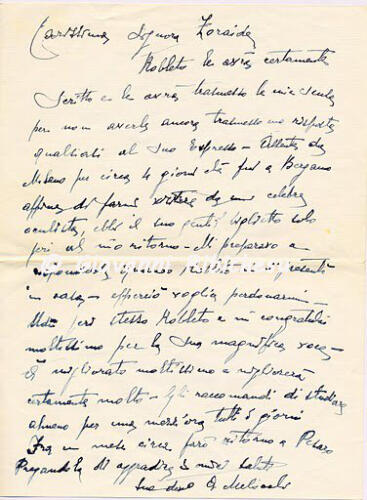 Carissima Signora Zoraide,
Mobleto le avrà certamente
scritto e le avrà trasmesso le mie scuse
per non averle ancora trasmesso una risposta
qualsiasi al suo Espresso - Assente da
Milano per circa 10 giorni chè fui a Bergamo
affine di farmi visitare da un celebre
oculista, ebbi il suo gentil biglietto solo
ieri al mio ritorno - Mi preparavo a
risponderle quando
in casa - epperciò voglia perdonarmi -
ieri stesso Mobleto e mi congratulai
moltissimo per la sua magnifica voce -
È migliorato moltissimo e migliorerà
certamente molto - Gli raccomandi di studiare
almeno per una mezz'ora tutti i giorni
Fra un mese circa farò ritorno a Pesaro
Pregandola di aggradire i miei saluti
Suo dev.